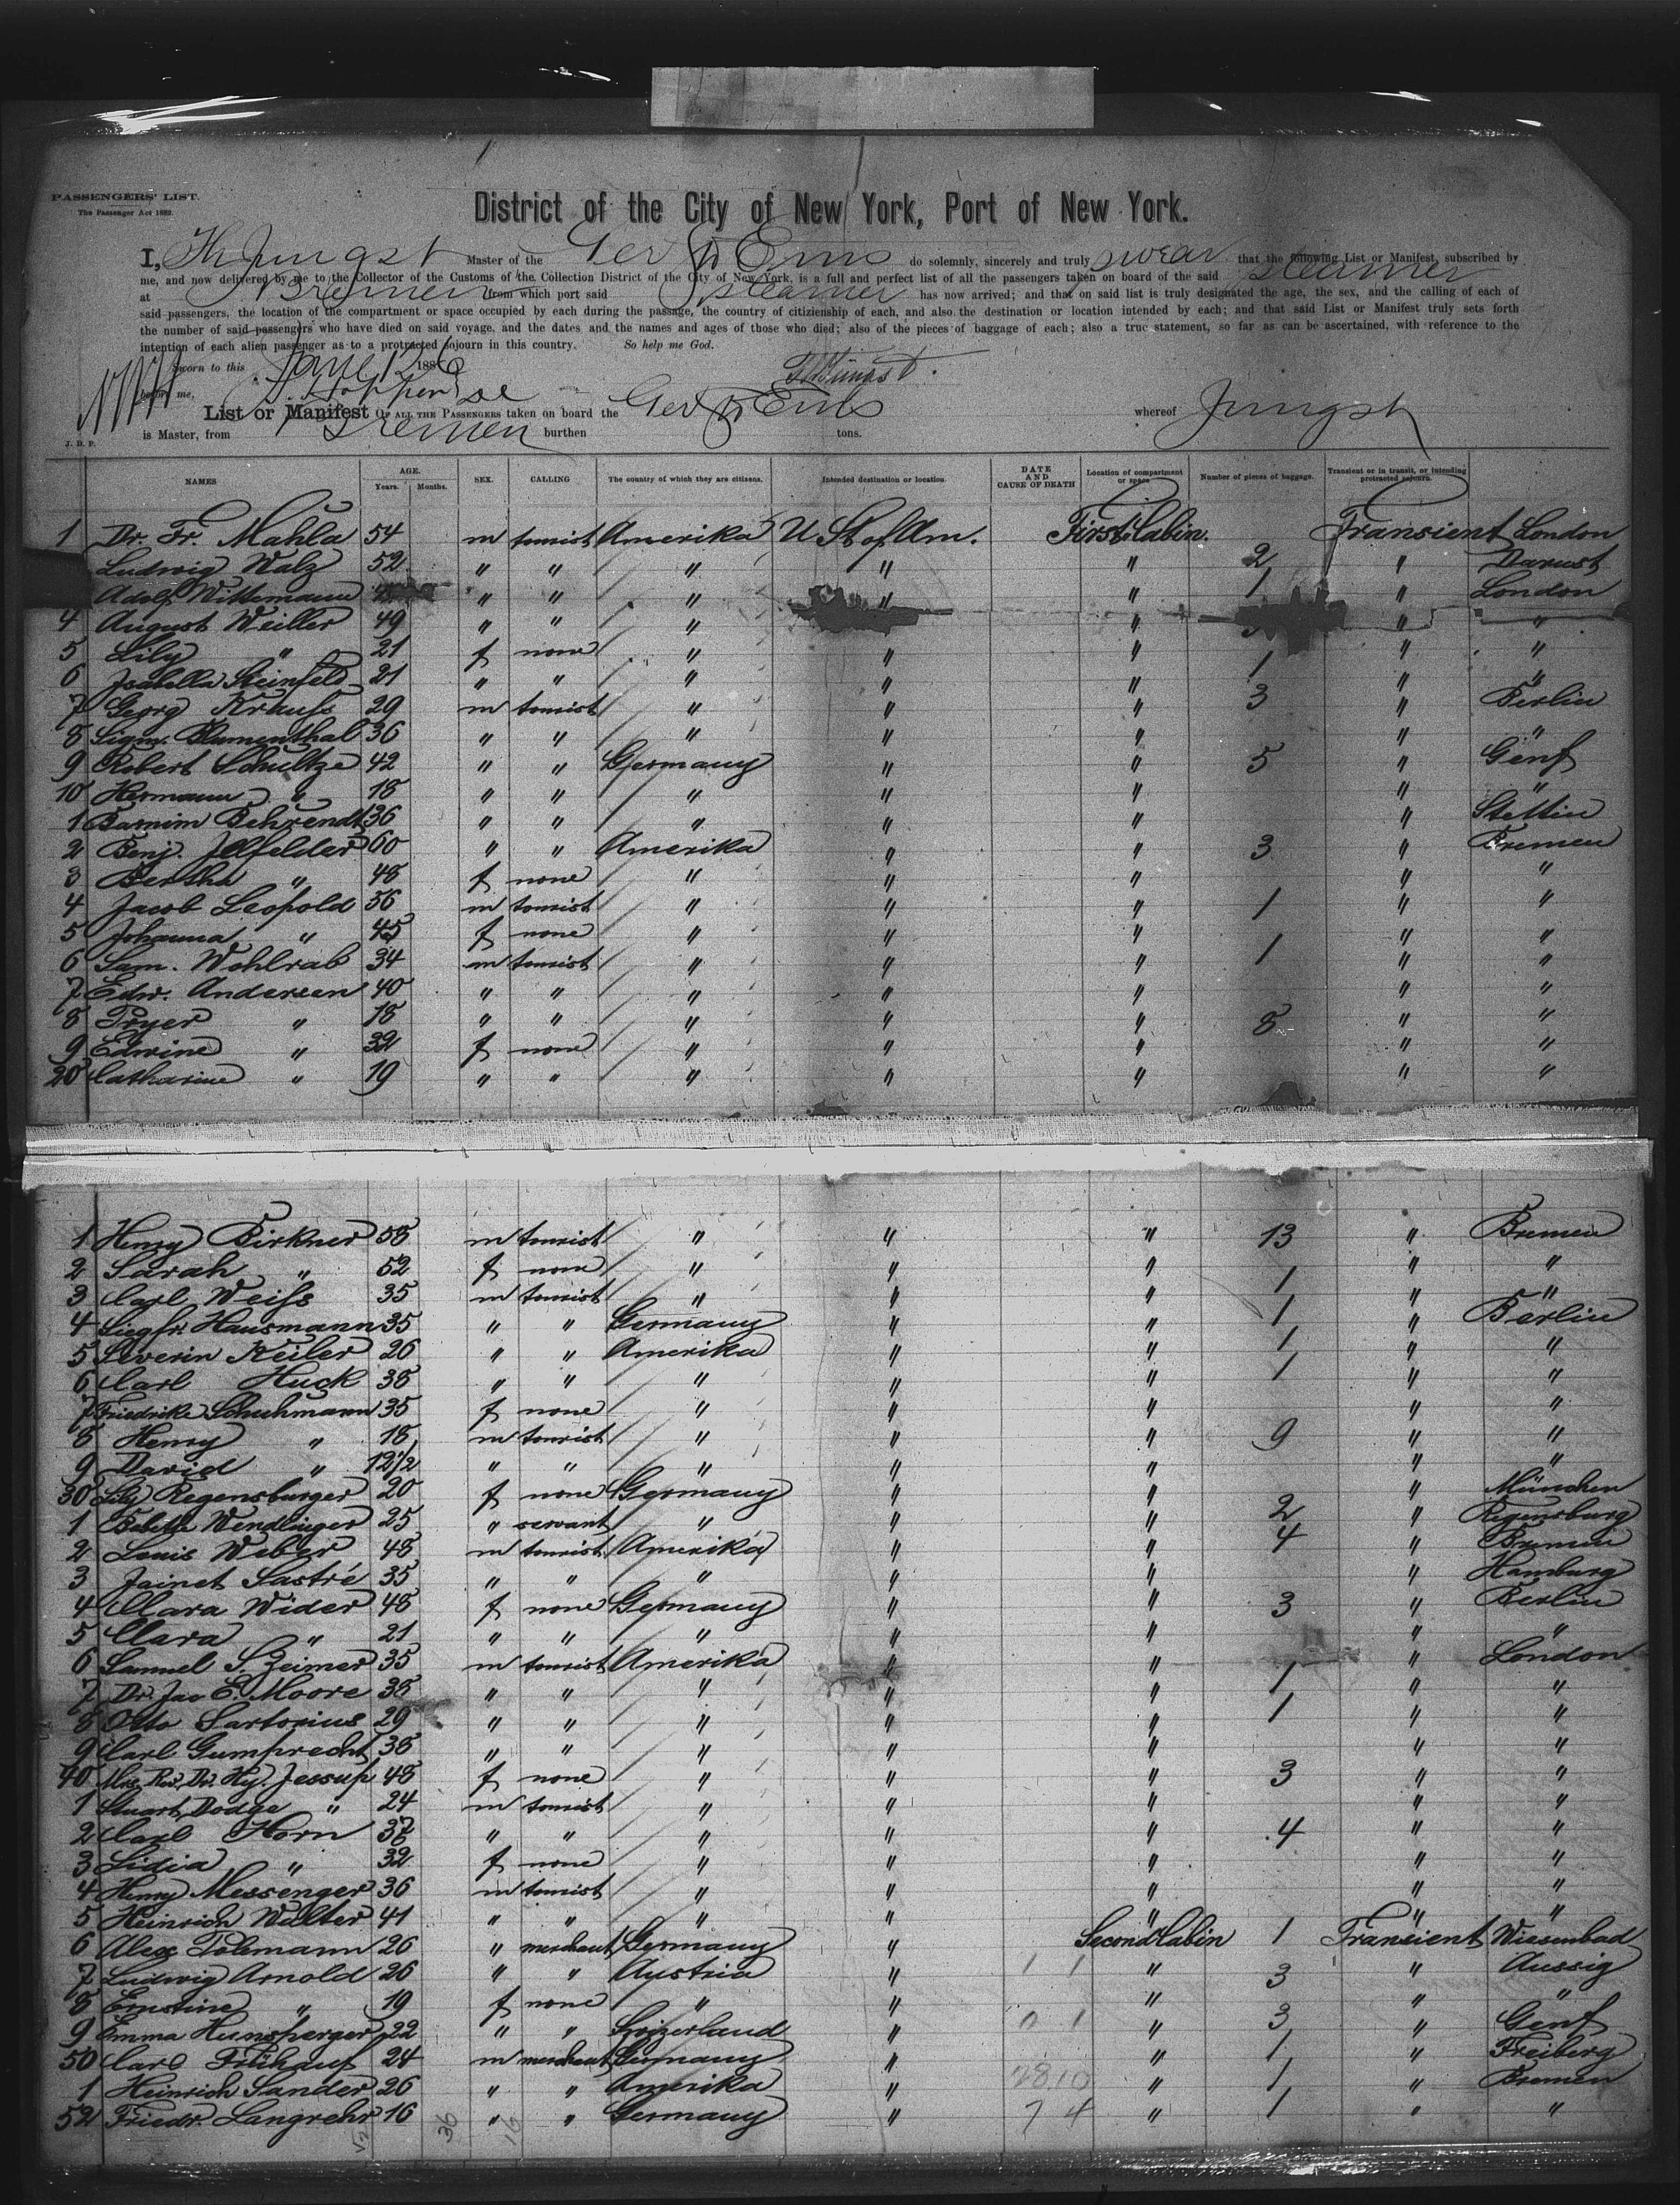 PASSENGERS' LIST.
The Passenger Act 1882.
District of the City of New York, Port of New York.
I, Th Jüngst Master of the Ger Str Ems do solemnly, sincerely and truly swear that the following List or Manifest, subscribed by
me, and now delivered by me to the Collector of the Customs of the Collection District of the City of New York, is a full and perfect list of all the passengers taken on board of the said steamer
at Bremen from which port said steamer has now arrived; and that on said list is truly designated the age, the sex, and the calling of each of
said passengers, the location of the compartment or space occupied by each during the passage, the country of citizienship of each, and also the destination or location intended by each; and that said List or Manifest truly sets forth
the number of said passengers who have died on said voyage, and the dates and the names and ages of those who died; also of the pieces of baggage of each; also a true statement, so far as can be ascertained, with reference to the
intention of each alien passenger as to a protracted sojourn in this country. So help me God.
Sworn to this June 12 1886
before me, Th Jüngst.
List or Manifest OF ALL THE PASSENGERS taken on board the Ger Str Ems whereof Jüngst
is Master, from Bremen burthen tons.
J. D. P.
NAMES AGE. Years. Months. SEX. CALLING The country of which they are citizens. Intended destination or location. DATE AND CAUSE OF DEATH Location of compartment or space Number of pieces of baggage. Transient or in transit, or intending protracted sojourn.
1 Dr. Fr. Mahla 54 m tourist Amerika U St of Am. First Cabin. Transient London
Ludwig Walz 52 " " " " " 2 "
Adolf Wittemann " " " " " 1 " London
4 August Weiller 49 " " " " " " "
5 Lily " 21 f none " " " " "
6 Isabella Steinfeld 21 " " " " " 1 " "
7 Georg Krauss 29 m tourist " " " 3 " Berlin
8 Sigm. Blumenthal 36 " " " " " " "
9 Robert Schultze 42 " " Germany " " 5 " Genf
10 Hermann " 18 " " " " " " "
1 Barnim Behrendt 36 " " " " " " Stettin
2 Benj. Illfelder 60 " " Amerika " " 3 " Bremen
3 Bertha " 48 f none " " " " "
4 Jacob Leopold 56 m tourist " " " 1 " "
5 Johanna " 45 f none " " " " "
6 Sam. Wohlrab 34 m tourist " " " 1 " "
7 Edw. Andersen 40 " " " " " " "
8 Pryer " 18 " " " " " 8 " "
9 Edwine " 32 f none " " " " "
20 Catharine " 19 " " " " " " "
1 Henry Birkner 58 m tourist " " " 13 " Bremen
2 Sarah " 52 f none " " " " "
3 Carl Weiss 35 m tourist " " " 1 " "
4 Siegfr. Hausmann 35 " " Germany " " 1 " Berlin
5 Severin Keiler 26 " " Amerika " " 1 " "
6 Carl Huck 38 " " " " " 1 " "
7 Friedrike Schuhmann 35 f none " " " " "
8 Henry " 18 m tourist " " " 9 " "
9 David " 12 1/2 " " " " " " "
30 Lily Regensburger 20 f none Germany " " " München
1 Babette Wendlinger 25 " servant " " " 2 " Regensburg
2 Louis Weber 48 m tourist Amerika " " 4 " Bremen
3 Jainet Sastré 35 " " " " " " Hamburg
4 Clara Wider 48 f none Germany " " 3 " Berlin
5 Clara " 21 " " " " " " "
6 Samuel S. Zeimer 35 m tourist Amerika " " " London
7 Dr. Jac E. Moore 38 " " " " " 1 " "
8 Otto Sartorius 29 " " " " " 1 " "
9 Carl Gumprecht 38 " " " " " " "
40 Mrs. Rev. Dr. Hy. Jessup 48 f none " " " 3 " "
1 Stuart Dodge " 24 m tourist " " " " "
2 Carl Horn 37 " " " " " 4 " "
3 Lidia " 32 f none " " " " "
4 Henry Messenger 36 m tourist " " " " "
5 Heinrich Walter 41 " " " " " " "
6 Alex Tolemann 26 " merchant Germany " Second Cabin 1 Transient Wiesenbad
7 Ludwig Arnold 26 " " Austria " " 3 " Aussig
8 Ernstine " 19 f none " " " " "
9 Emma Hunsperger 22 " " Swizerland " " 3 " Genf
50 Carl Frühauf 24 m merchant Germany " " 1 " Freiberg
1 Heinrich Sander 26 " " Amerika " " 1 " Bremen
52 Friedr. Langrehr 16 " " Germany " " 1 " "